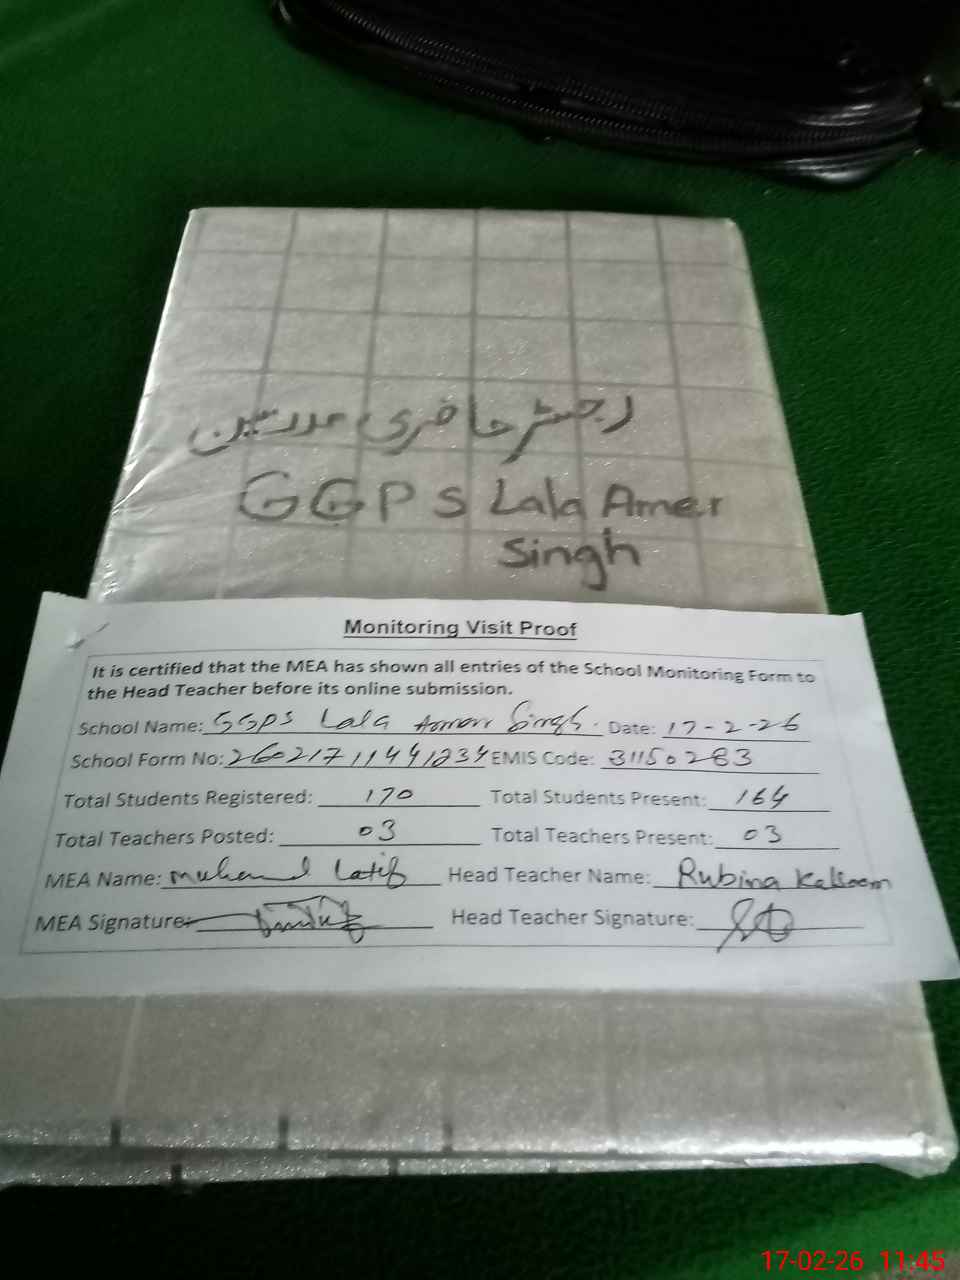 رجسٹر حاضری مدرسین
GGPS Lala Amer
Singh
Monitoring Visit Proof
It is certified that the MEA has shown all entries of the School Monitoring Form to
the Head Teacher before its online submission.
School Name: GGPS Lala Amer Singh. Date: 17-2-26
School Form No: 26021711441234 EMIS Code: 31150283
Total Students Registered: 170 Total Students Present: 164
Total Teachers Posted: 03 Total Teachers Present: 03
MEA Name: Muhammad Latif Head Teacher Name: Rubina Kalsoom
MEA Signature: Head Teacher Signature:
17-02-26 11:45